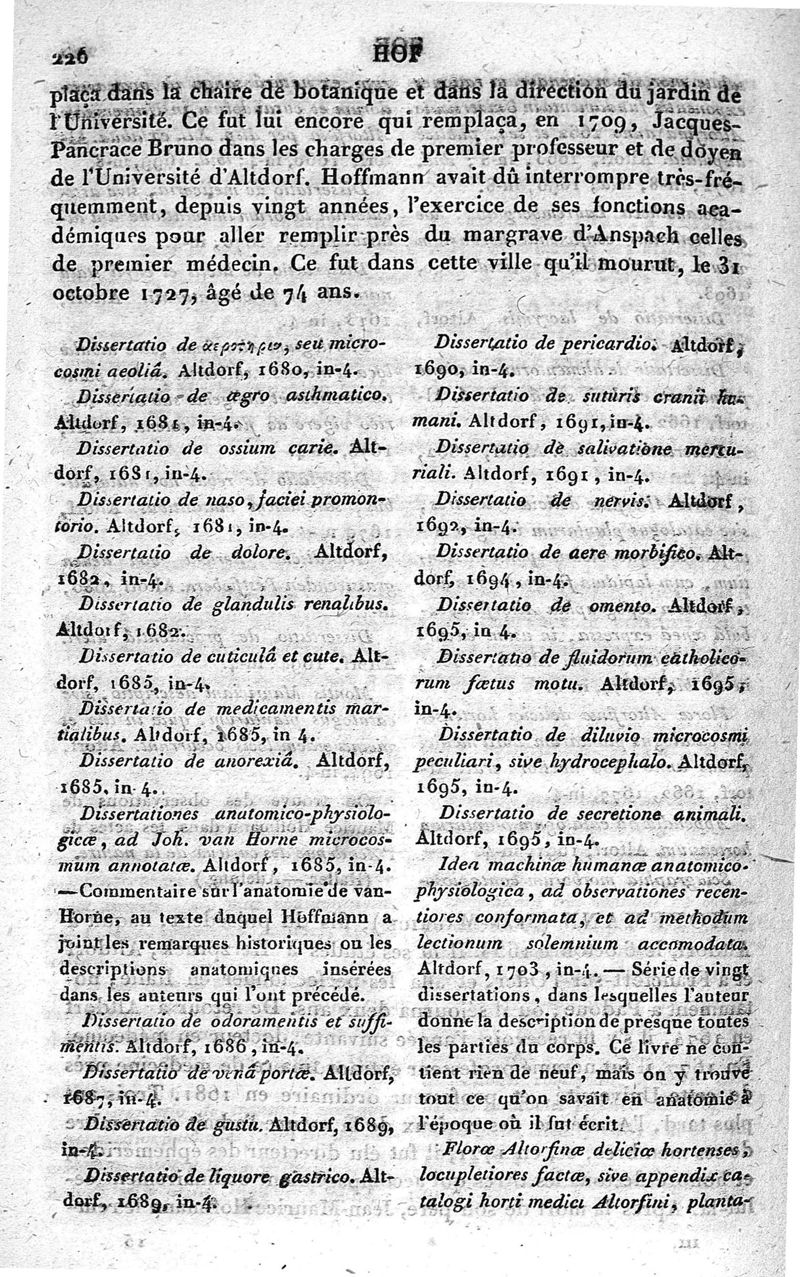 226
HOF
plaça dans la chaire de botanique et dans la direction du jardin de
l'Université. Ce fut lui encore qui remplaça, en 1709, Jacques-
Pancrace Bruno dans les charges de premier professeur et de doyen
de l'Université d'Altdorf. Hoffmann avait dû interrompre très-fré-
quemment, depuis vingt années, l'exercice de ses fonctions aca-
démiques pour aller remplir près du margrave d'Anspach celles
de premier médecin. Ce fut dans cette ville qu'il mourut, le 31
octobre 1727, âgé de 74 ans.
Dissertatio de seu micro-
cosmi aeoliâ. Altdorf, 1680, in-4.
Dissertatio de ægro asthmatico.
Altdorf, 1681, in-4.
Dissertatio de ossium carie. Alt-
dorf, 1681, in-4.
Dissertatio de naso, faciei promon-
torio. Altdorf, 1681, in-4.
Dissertatio de dolore. Altdorf,
1682, in-4.
Dissertatio de glandulis renalibus.
Altdorf, 1682.
Dissertatio de cuticulâ et cute. Alt-
dorf, 1685, in-4.
Dissertatio de medicamentis mar-
tialibus. Altdorf, 1685, in 4.
Dissertatio de anorexiâ. Altdorf,
1685, in-4.
Dissertationes anatomico-physiolo-
gicæ, ad Joh. van Horne microcos-
mum annotatæ. Altdorf, 1685, in-4.
—Commentaire sur l'anatomie de van-
Horne, au texte duquel Hoffmann a
joint les remarques historiques ou les
descriptions anatomiques insérées
dans les auteurs qui l'ont précédé.
Dissertatio de odoramentis et suffi-
mentis. Altdorf, 1686, in-4.
Dissertatio de venâ portæ. Altdorf,
1687, in-4.
Dissertatio de gustu. Altdorf, 1689,
in-4.
Dissertatio de liquore gastrico. Alt-
dorf, 1689, in-4.
Dissertatio de pericardio. Altdorf,
1690, in-4.
Dissertatio de suturis cranii hu-
mani. Altdorf, 1691, in-4.
Dissertatio de salivatione mercu-
riali. Altdorf, 1691, in-4.
Dissertatio de nervis. Altdorf,
1692, in-4.
Dissertatio de aere morbifico. Alt-
dorf, 1694, in-4.
Dissertatio de omento. Altdorf,
1695, in 4.
Dissertatio de fluidorum catholico-
rum fœtus motu. Altdorf, 1695,
in-4.
Dissertatio de diluvio microcosmi
peculiari, sive hydrocephalo. Altdorf,
1695, in-4.
Dissertatio de secretione animali.
Altdorf, 1695, in-4.
Idea machinæ humanæ anatomico-
physiologica, ad observationes recen-
tiores conformata, et ad methodum
lectionum solemnium accomodata.
Altdorf, 1703, in-4. — Série de vingt
dissertations, dans lesquelles l'auteur
donne la description de presque toutes
les parties du corps. Ce livre ne con-
tient rien de neuf, mais on y trouve
tout ce qu'on savait en anatomie à
l'époque où il fut écrit.
Floræ Altorfinæ deliciæ hortenses,
locupletiores factæ, sive appendix ca-
talogi horti medici Altorfini, planta-